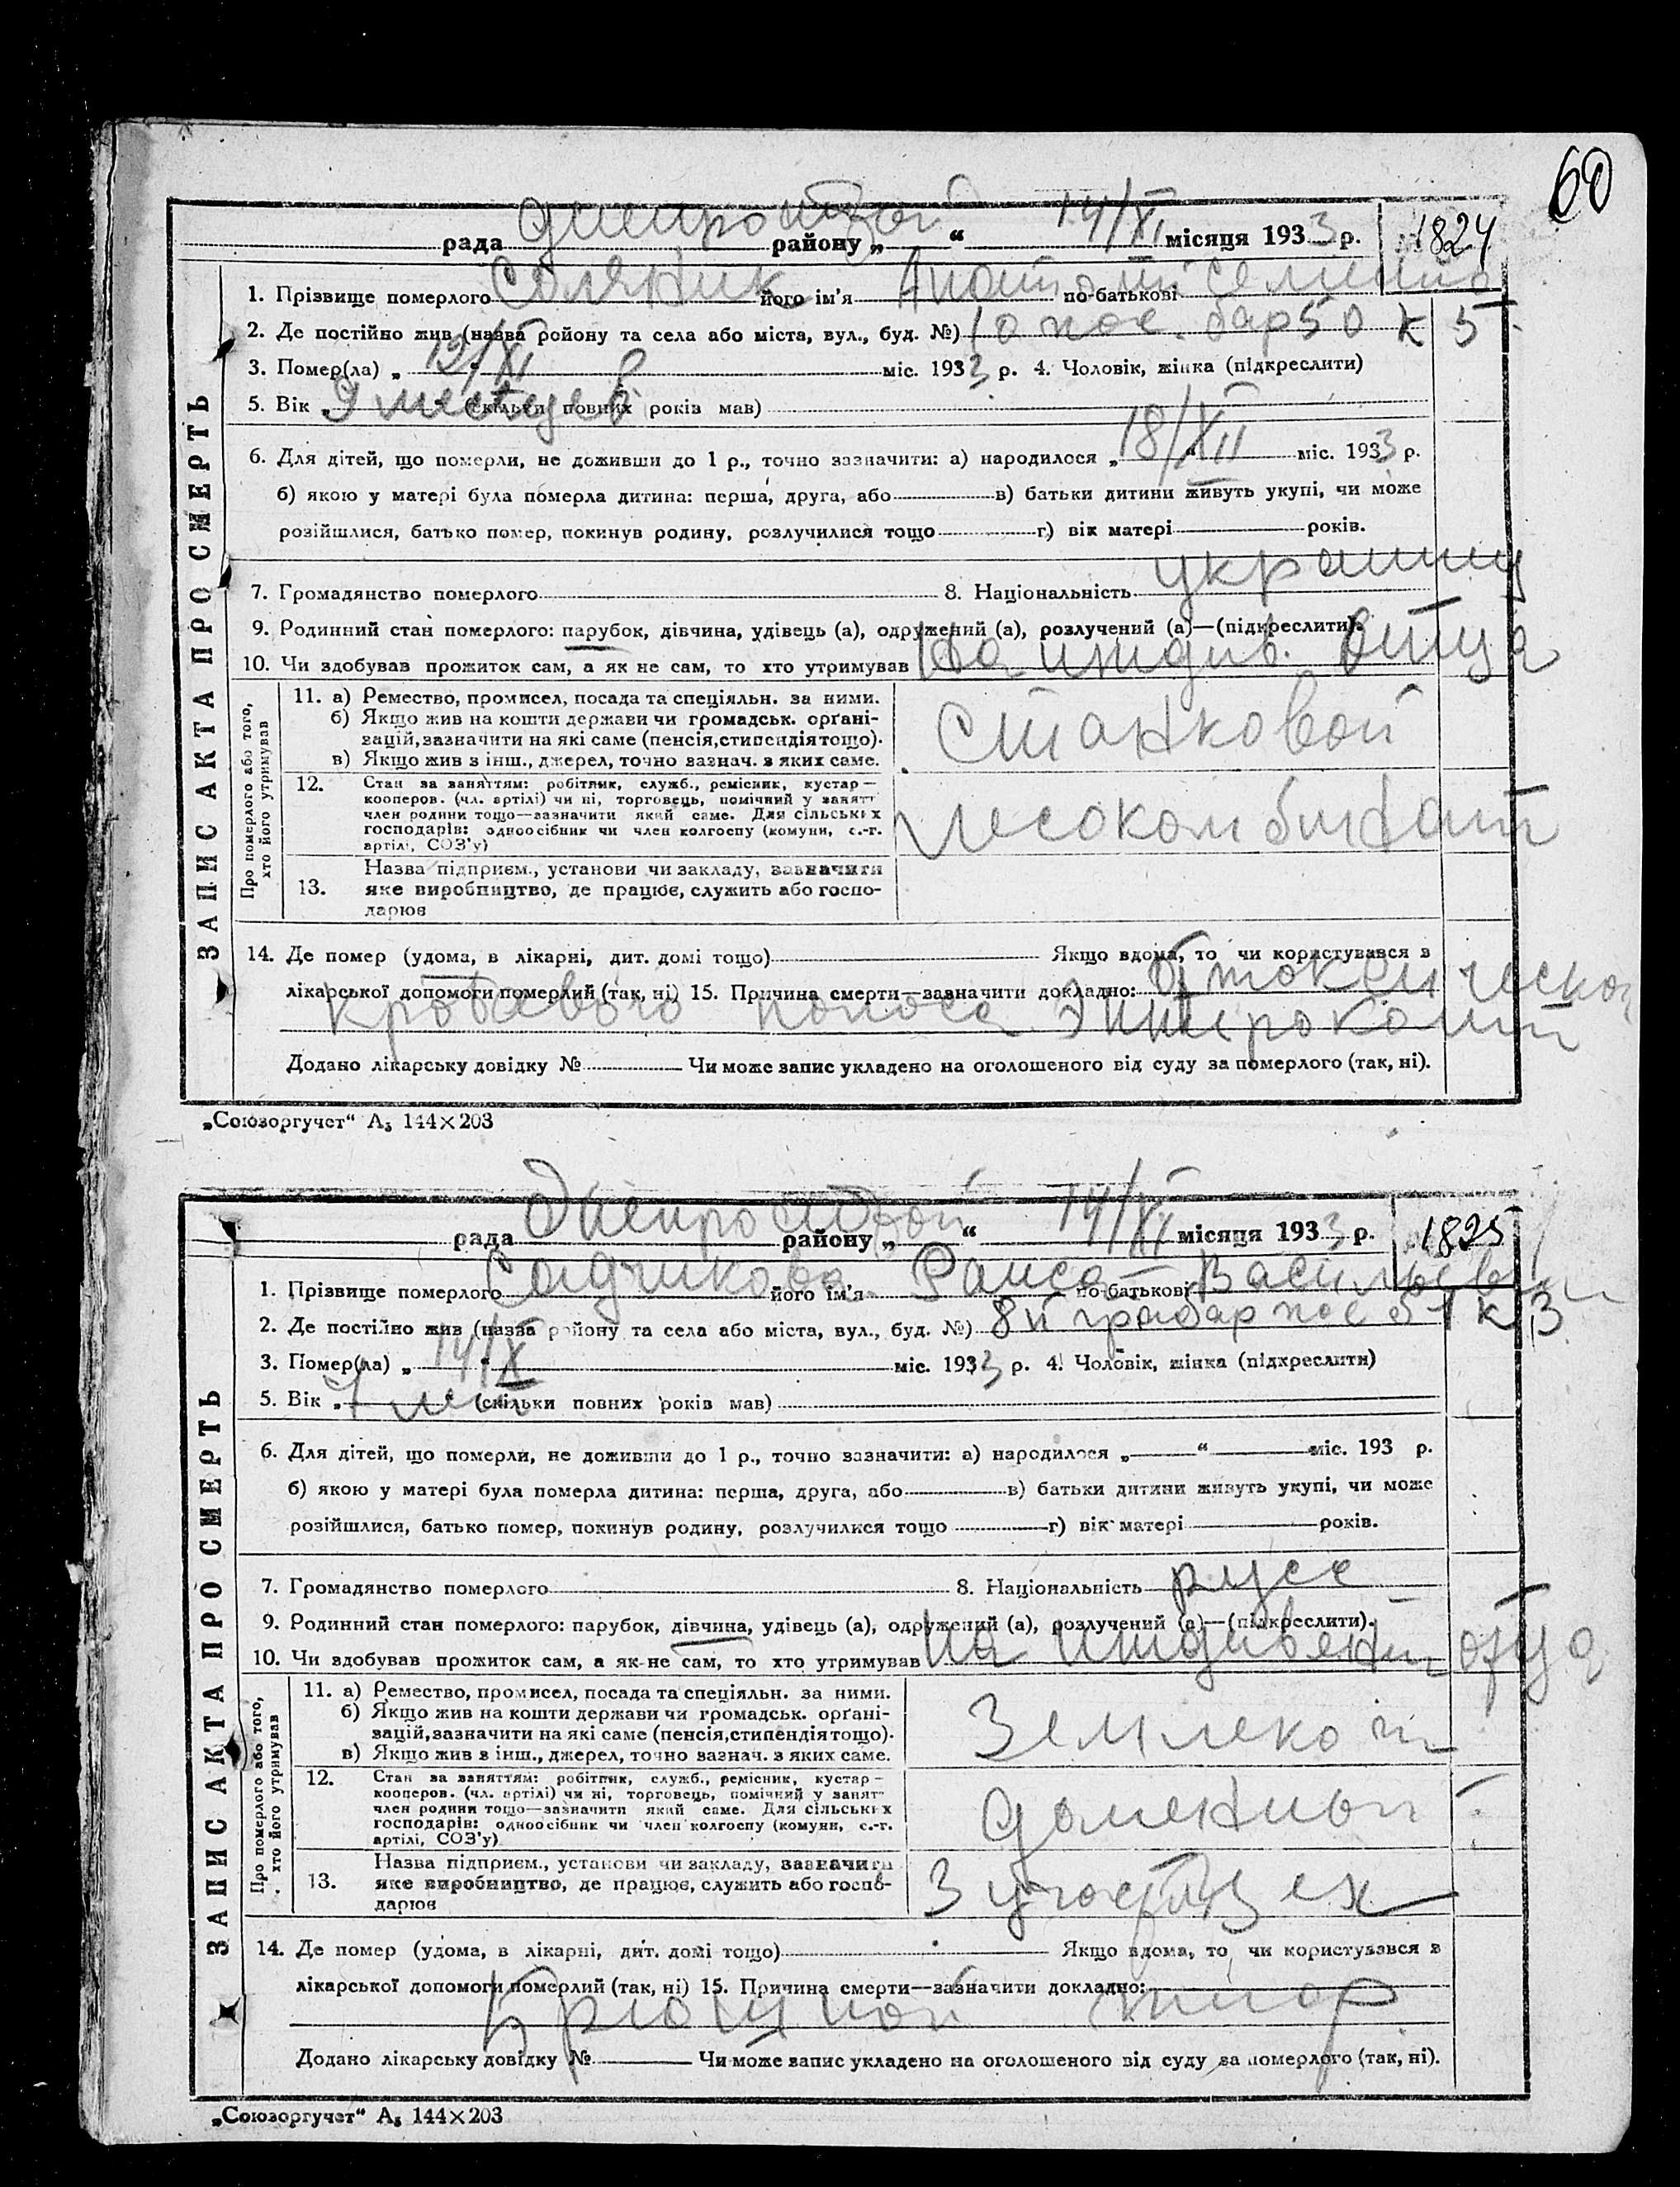 60
Днепростой
рада района „ “ 14/XI місяця 1933 р. 1824
1. Прізвище померлого Соляник його ім'я Анатолий по-батькові Семенов
2. Де постійно жив (назва ройону та села або міста, вул., буд. №) 10 пос. бар 50 к 5
3. Помер(ла) „ /XI міс. 1933 р. 4. Чоловік, жінка (підкреслити)
5. Вік „ 9 месяцев (скільки повних років мав)
6. Для дітей, що померли, не доживши до 1 р., точно зазначити: а) народилося „ 18/XII “ міс. 1933 р.
б) якою у матері була померла дитина: перша, друга, або в) батьки дитини живуть укупі, чи може
розійшлися, батько помер, покинув родину, розлучилися тощо г) вік матері років.
7. Громадянство померлого 8. Національність украинц
9. Родинний стан померлого: парубок, дівчина, удівець (а), одружений (а), розлучений (а)—(підкреслити).
10. Чи здобував прожиток сам, а як не сам, то хто утримував На иждив. Отца
ЗАПИС АКТА ПРО СМЕРТЬ
Про померлого або того, хто його утримував
11. а) Ремество, промисел, посада та спеціяльн. за ними.
б) Якщо жив на кошти держави чи громадськ. орґані-
зацій, зазначити на які саме (пенсія, стипендія тощо).
в) Якщо жив з інш., джерел, точно зазнач. з яких саме.
Станковой
12. Стан за заняттям: робітник, служб., ремісник, кустар —
кооперов. (чл. артілі) чи ні, торговець, помічний у занятт
член родини тощо—зазначити який саме. Для сільських
господарів: одноосібник чи член колгоспу (комуни, с.-г.
артілі, СОЗ'у)
Лесокомбинат
13. Назва підприєм., установи чи закладу, зазначити
яке виробництво, де працює, служить або госпо-
дарює
14. Де помер (удома, в лікарні, дит. домі тощо) Якщо вдома, то чи користувався в
лікарської допомоги померлий (так, ні) 15. Причина смерти—зазначити докладно: от токсической
кровавого поноса Энтероколит
Додано лікарську довідку № Чи може запис укладено на оголошеного від суду за померлого (так, ні).
„Союзоргучет“ А₅ 144×203
Днепростой
рада району „ “ 14/XI місяця 1933 р. 1825
1. Прізвище померлого Садчикова його ім'я Раиса по-батькові Васильев
2. Де постійно жив (назва ройону та села або міста, вул., буд. №) 8й грабар пос б 1 к 3
3. Помер(ла) „ 14/X “ міс. 1933 р. 4. Чоловік, жінка (підкреслити)
5. Вік „ 7 лет “ (скільки повних років мав)
6. Для дітей, що померли, не доживши до 1 р., точно зазначити: а) народилося „ “ міс. 193 р.
б) якою у матері була померла дитина: перша, друга, або в) батьки дитини живуть укупі, чи може
розійшлися, батько помер, покинув родину, розлучилися тощо г) вік матері років.
7. Громадянство померлого 8. Національність русс
9. Родинний стан померлого: парубок, дівчина, удівець (а), одружений (а), розлучений (а)—(підкреслити).
10. Чи здобував прожиток сам, а як не сам, то хто утримував На иждивении отца
ЗАПИС АКТА ПРО СМЕРТЬ
Про померлого або того, хто його утримував
11. а) Ремество, промисел, посада та спеціяльн. за ними.
б) Якщо жив на кошти держави чи громадськ. орґані-
зацій, зазначити на які саме (пенсія, стипендія тощо).
в) Якщо жив з інш., джерел, точно зазнач. з яких саме.
Землекоп
12. Стан за заняттям: робітник, служб., ремісник, кустар —
кооперов. (чл. артілі) чи ні, торговець, помічний у занят
член родини тощо—зазначити який саме. Для сільських
господарів: одноосібник чи член колгоспу (комуни, с.-г.
артілі, СОЗ'у)
доменной
13. Назва підприєм., установи чи закладу, зазначити
яке виробництво, де працює, служить або госпо-
дарює
3 цех
14. Де помер (удома, в лікарні, дит. домі тощо) Якщо вдома, то чи користувався в
лікарської допомоги померлий (так, ні) 15. Причина смерти—зазначити докладно:
Брюшной тиф
Додано лікарську довідку № Чи може запис укладено на оголошеного від суду за померлого (так, ні).
„Союзоргучет“ А₅ 144×203